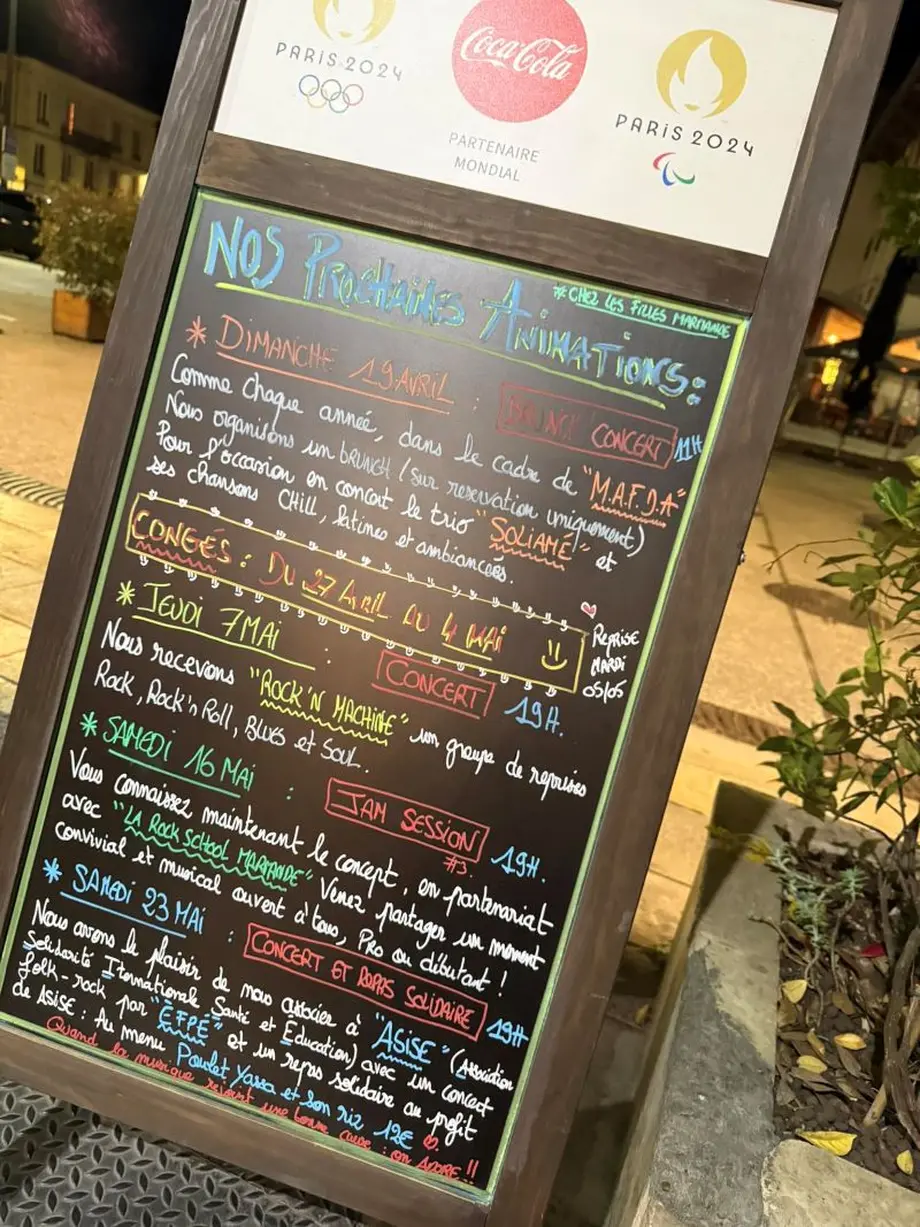 PARIS 2024
Coca-Cola
PARTENAIRE
MONDIAL
PARIS 2024
NOS PROCHAINES ANIMATIONS:
#CHEZ LES FILLES MARMANDE
* DIMANCHE 19 AVRIL : BRUNCH CONCERT 11H
Comme chaque année, dans le cadre de "M.A.F.D.A"
Nous organisons un BRUNCH (sur reservation uniquement)
Pour l'occasion en concert le trio "SOLIAMÉ" et
ses chansons CHILL, latines et ambiancées.
CONGÉS : DU 27 AVRIL AU 4 MAI
REPRISE
MARDI
05/05
* JEUDI 7 MAI : CONCERT 19H.
Nous recevons "ROCK'N MACHINE" un groupe de reprises
Rock, Rock'n Roll, Blues et Soul.
* SAMEDI 16 MAI : JAM SESSION 19H.
#3.
Vous connaissez maintenant le concept, en partenariat
avec "LA ROCK SCHOOL MARMANDE" Venez partager un moment
convivial et musical ouvert à tous, Pro ou débutant !
* SAMEDI 23 MAI : CONCERT ET REPAS SOLIDAIRE 19H
Nous avons le plaisir de nous associer à "ASISE" (Association
Solidarité Internationale Santé et Éducation) avec un concert
folk-rock par "ÉFPÉ" et un repas solidaire au profit
de ASISE : Au menu Poulet Yassa et son riz 12€
Quand la musique rejoint une bonne cause : on ADORE !!